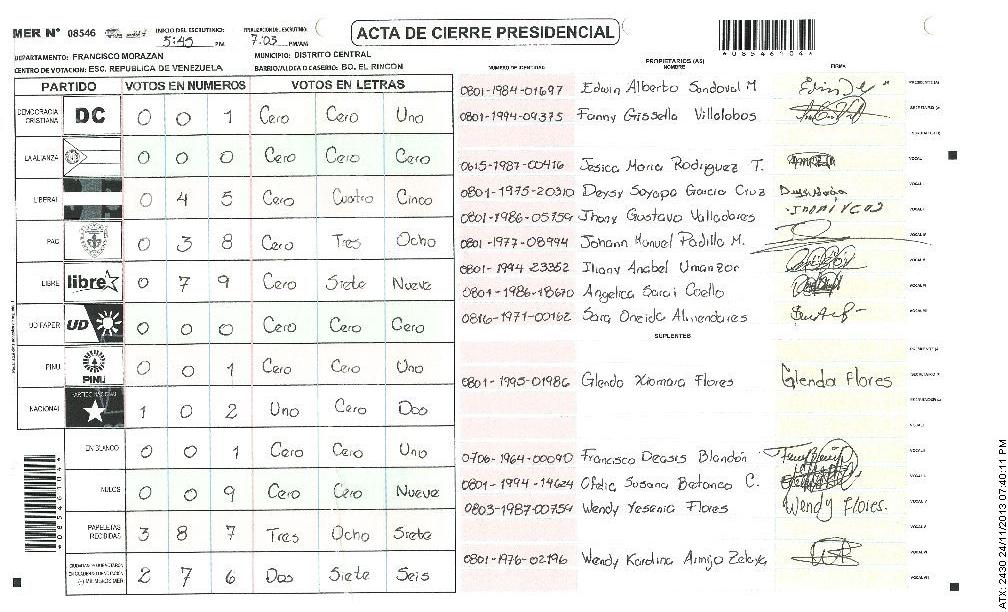 MER N° 08546
INICIO DEL ESCRUTINIO:
5:45 PM
FINALIZACION DEL ESCRUTINIO:
7:03 PM/AM
ACTA DE CIERRE PRESIDENCIAL
*08546104*
DEPARTAMENTO: FRANCISCO MORAZAN
MUNICIPIO: DISTRITO CENTRAL
CENTRO DE VOTACION: ESC. REPUBLICA DE VENEZUELA
BARRIO/ALDEA O CASERIO: BO. EL RINCON
PARTIDO VOTOS EN NUMEROS VOTOS EN LETRAS
DEMOCRACIA CRISTIANA DC 0 0 1 Cero Cero Uno
LA ALIANZA 0 0 0 Cero Cero Cero
LIBERAL 0 4 5 Cero Cuatro Cinco
PAC 0 3 8 Cero Tres Ocho
LIBRE libre 0 7 9 Cero Siete Nueve
UD FAPER UD 0 0 0 Cero Cero Cero
PINU PINU 0 0 1 Cero Cero Uno
NACIONAL 1 0 2 Uno Cero Dos
EN BLANCO 0 0 1 Cero Cero Uno
NULOS 0 0 9 Cero Cero Nueve
PAPELETAS RECIBIDAS 3 8 7 Tres Ocho Siete
2 7 6 Dos Siete Seis
*08546104*
PROPIETARIOS (AS)
NUMERO DE IDENTIDAD NOMBRE FIRMA
0801-1984-01697 Edwin Alberto Sandoval M
0801-1994-09375 Fanny Gissella Villalobos
0615-1987-00416 Jesica Maria Rodriguez T.
0801-1975-20310 Deysy Soyapa Garcia Cruz
0801-1986-05759 Jhony Gustavo Valladares
0801-1977-08994 Johann Manuel Padilla M.
0801-1994 23352 Iliany Anabel Umanzor
0801-1986-18670 Angelica Sarai Coello
0816-1971-00162 Sara Oneida Almendares
SUPLENTES
0801-1995-01986 Glenda Xiomara Flores Glenda Flores
0706-1964-00090 Francisco Deasis Blandón
0801-1994-14624 Susana Betanco C.
0803-1987-00759 Wendy Yesenia Flores Wendy Flores.
0801-1976-02196 Wendy Karolina Armijo Zelaya
ATX: 2430 24/11/2013 07:40:11 PM